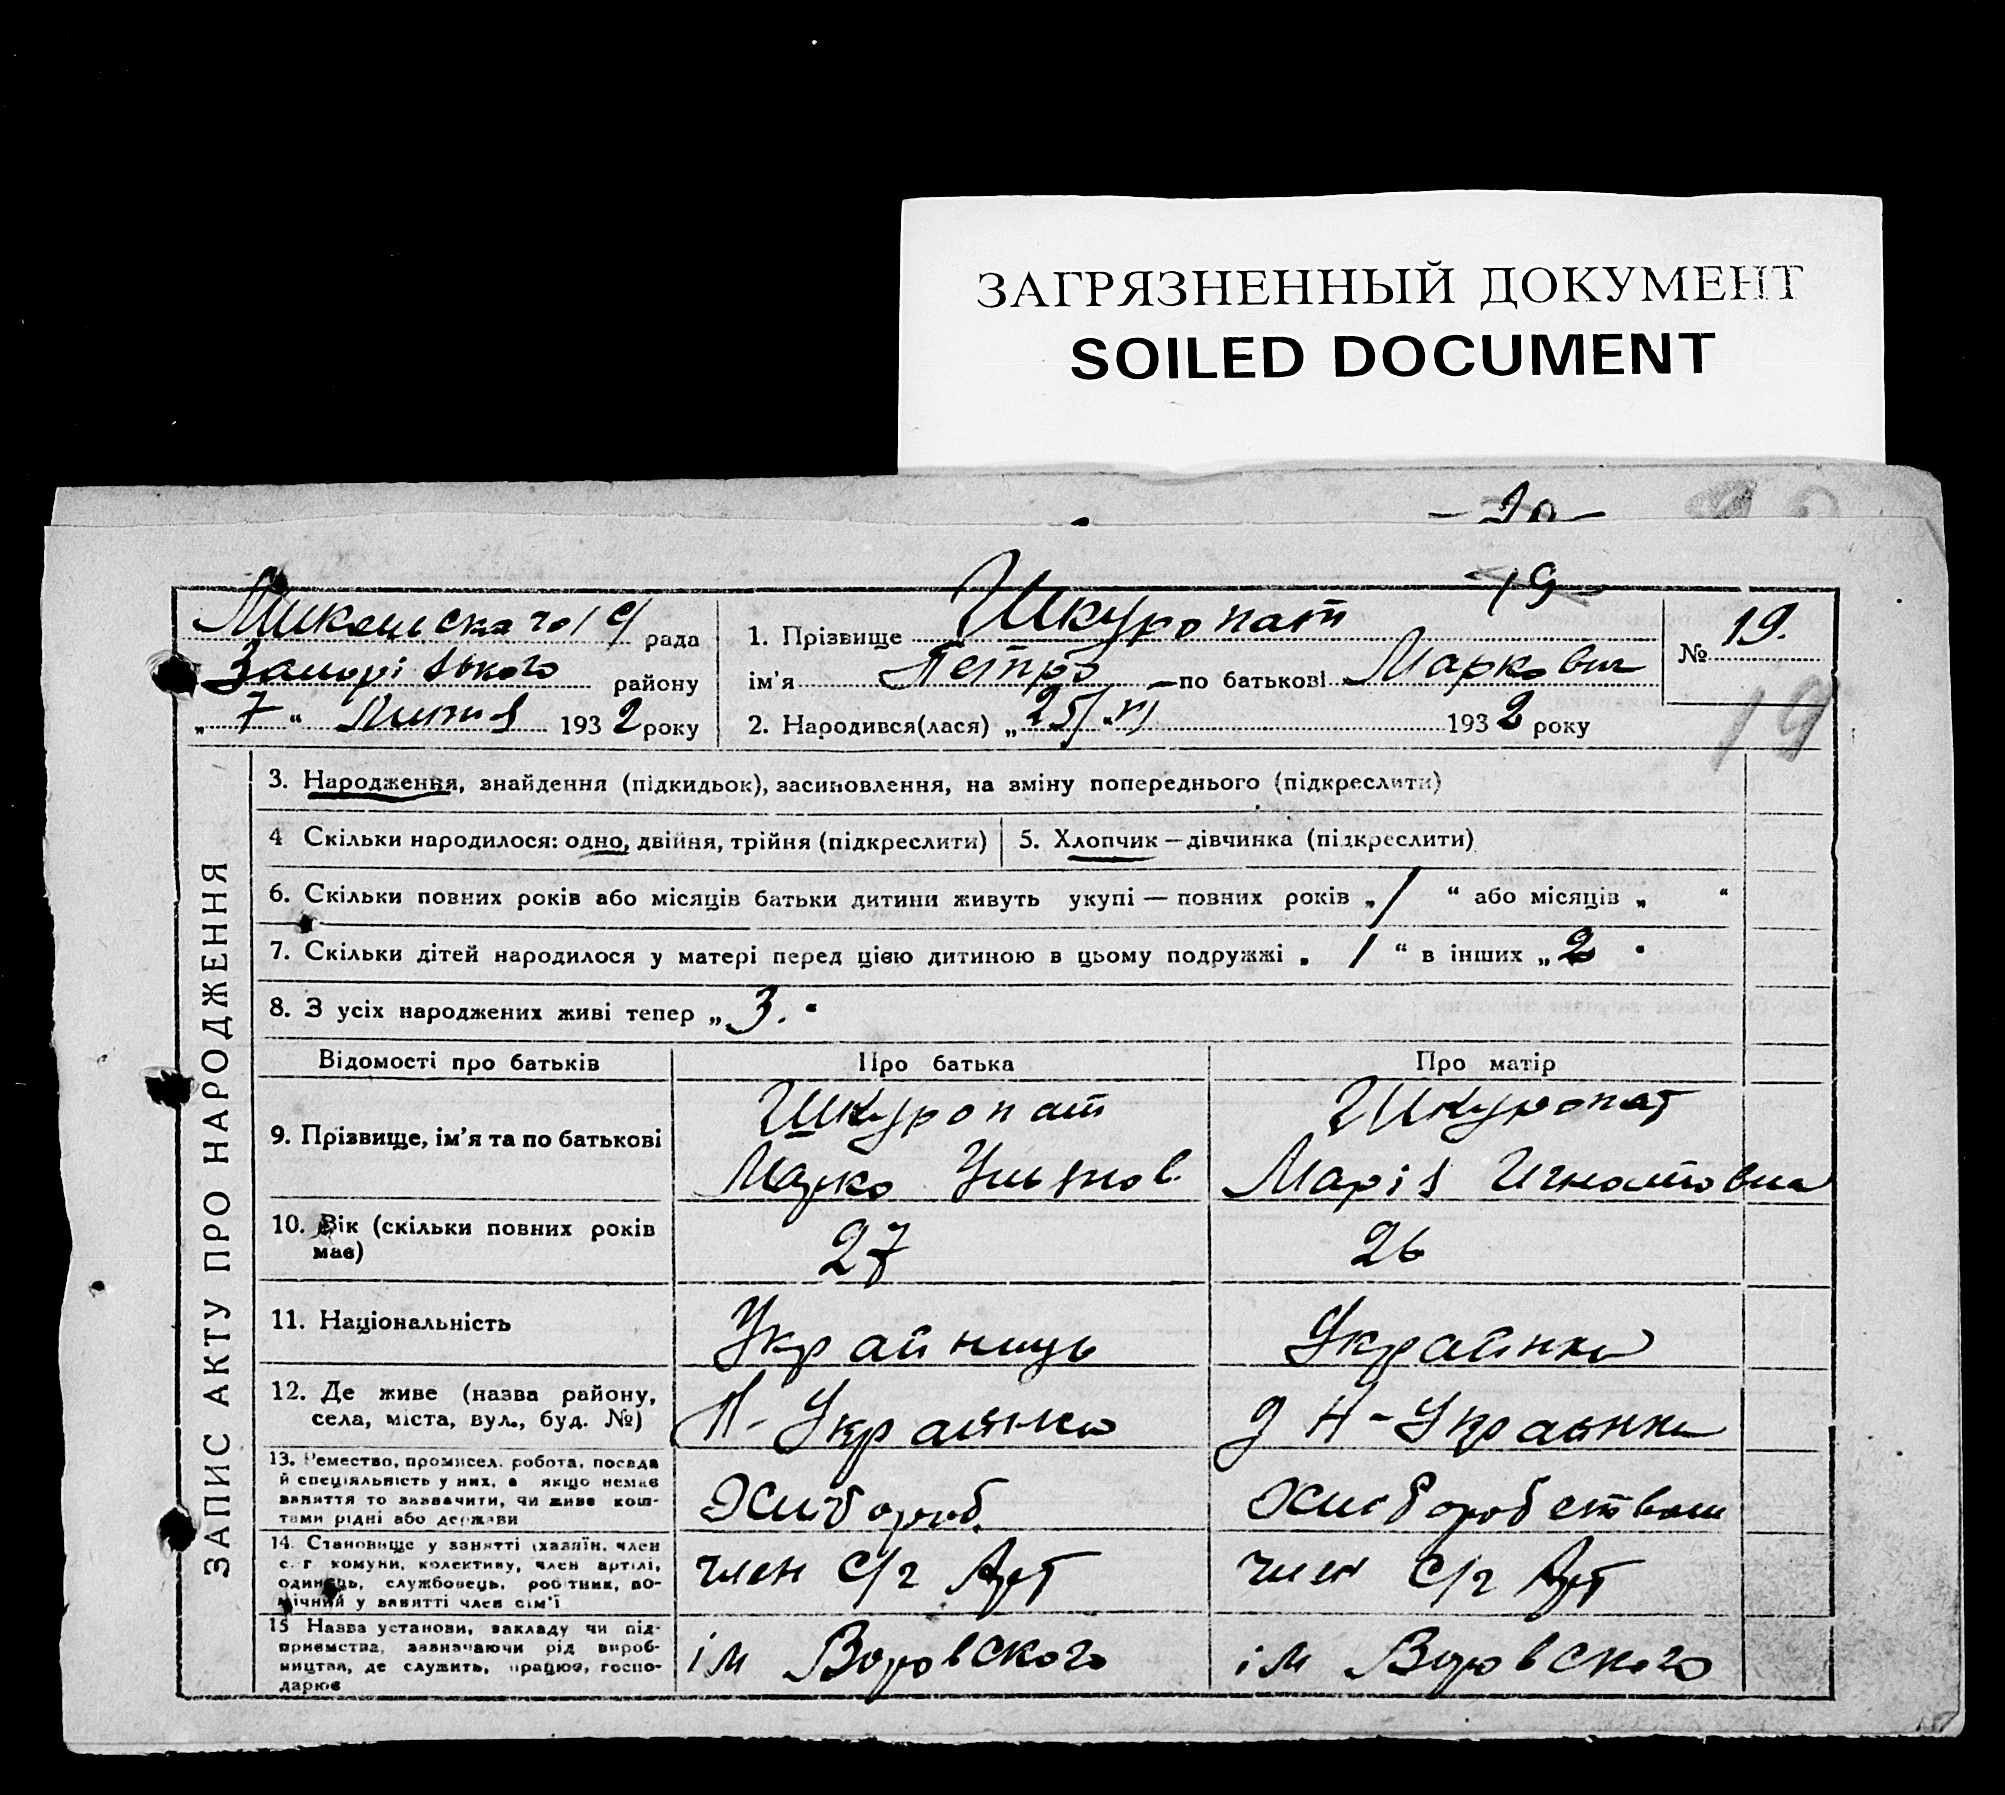 ЗАГРЯЗНЕННЫЙ ДОКУМЕНТ
SOILED DOCUMENT
-20-
-19-
рада
району
„ 7 “ Липня 1932 року
1. Прізвище Шкуропат
ім'я Петро по батькові Маркович
2. Народився(лася) „ 25/VI 1932 року
№ 19.
19
ЗАПИС АКТУ ПРО НАРОДЖЕННЯ
3. Народження, знайдення (підкидьок), засиновлення, на зміну попереднього (підкреслити)
4 Скільки народилося: одно, двійня, трійня (підкреслити)
5. Хлопчик — дівчинка (підкреслити)
6. Скільки повних років або місяців батьки дитини живуть укупі — повних років „ / “ або місяців „ “
7. Скільки дітей народилося у матері перед цією дитиною в цьому подружжі „ 1 “ в інших „ 2 “
8. З усіх народжених живі тепер „ 3. “
Відомості про батьків
Про батька
Про матір
9. Прізвище, ім'я та по батькові
Шкуропат
Марко
Шкуропат
Марія Игнатовна
10. Вік (скільки повних років
має)
27
26
11. Національність
Українець
Українка
12. Де живе (назва району,
села, міста, вул., буд. №)
Н-Українка
Н-Українка
13. Ремество, промисел, робота, посада
й спеціяльність у них, а якщо немає
заняття то зазначити, чи живе кош-
тами рідні або держави
Хлібороб.
14. Становище у занятті (хазяїн, член
с.-г. комуни, колективу, член артілі,
одинець, службовець, робітник, по-
мічний у занятті член сім'ї
член С/г Арт
член С/г Арт
15 Назва установи, закладу чи під-
приємства, зазначаючи рід вироб-
ництва, де служить, працює, госпо-
дарює
ім Воровского
ім Воровского